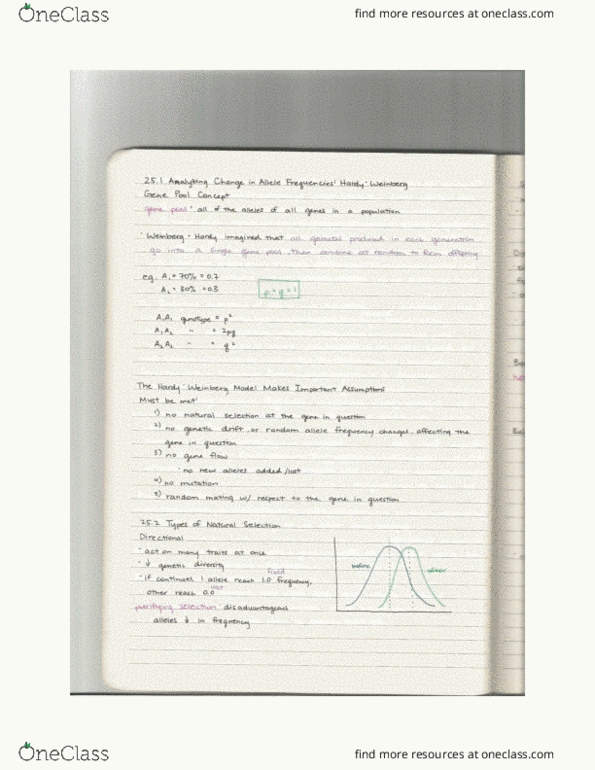 OneClass
find more resources at oneclass.com
25.1 Analyzing Change in Allele Frequencies: Hardy-Weinberg
Gene Pool Concept
gene pool: all of the alleles of all genes in a population
Weinberg + Hardy imagined that all gametes produced in each generation
go into a single gene pool, then combine at random to form offspring
eg. A₁ = 70% = 0.7
A₂ = 30% = 0.3
p + q = 1
A₁A₁ genotype = p²
A₁A₂ " = 2pq
A₂A₂ " = q²
The Hardy-Weinberg Model Makes Important Assumptions
Must be met:
1) no natural selection at the gene in question
2) no genetic drift, or random allele frequency changes, affecting the
gene in question
3) no gene flow
· no new alleles added/lost
4) no mutation
5) random mating w/ respect to the gene in question
25.2 Types of Natural Selection
Directional
· act on many traits at once
· ↓ genetic diversity
fixed
· if continues 1 allele reach 1.0 frequency,
lost
other reach 0.0
before
after
purifying selection: disadvantageous
alleles ↓ in frequency
OneClass
find more resources at oneclass.com